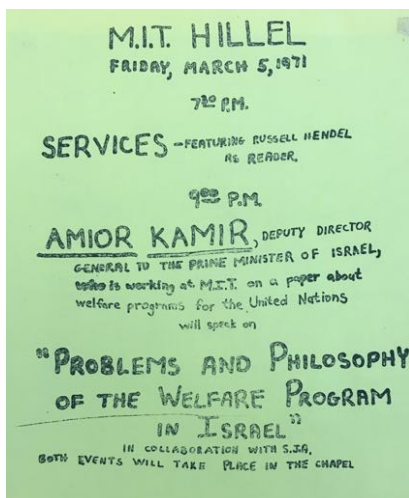 M.I.T. HILLEL
FRIDAY, MARCH 5, 1971
7:30 P.M.
SERVICES - FEATURING RUSSELL HENDEL
AS READER.
9:00 P.M.
AMIOR KAMIR, DEPUTY DIRECTOR
GENERAL TO THE PRIME MINISTER OF ISRAEL,
who is working at M.I.T. on a paper about
welfare programs for the United Nations
will speak on
"PROBLEMS AND PHILOSOPHY
OF THE WELFARE PROGRAM
IN ISRAEL"
IN COLLABORATION WITH S.J.A.
BOTH EVENTS WILL TAKE PLACE IN THE CHAPEL